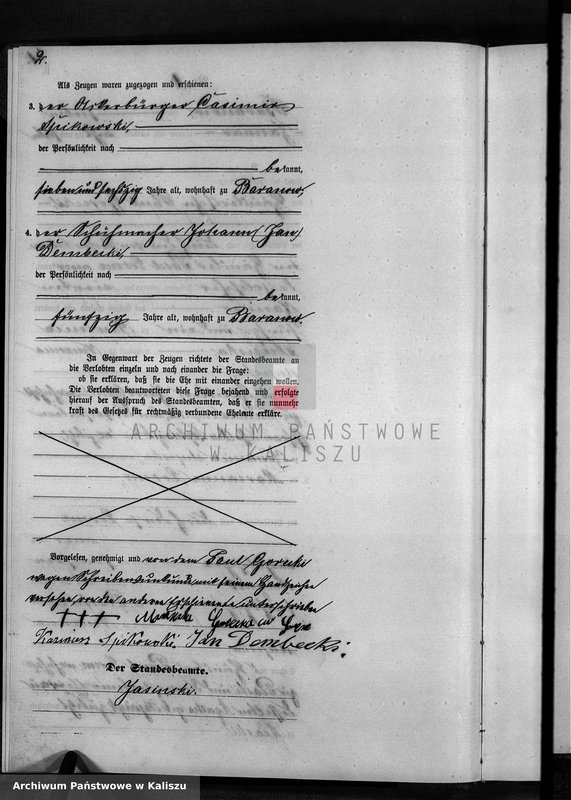 2.
Als Zeugen waren zugezogen und erschienen:
3. der Ackerbürger Casimir
Spikowski,
der Persönlichkeit nach
bekannt,
sieben und sechszig Jahre alt, wohnhaft zu Baranow,
4. der Schuhmacher Johann (Jan)
Dembecki,
der Persönlichkeit nach
bekannt,
fünfzig Jahre alt, wohnhaft zu Baranow.
In Gegenwart der Zeugen richtete der Standesbeamte an
die Verlobten einzeln und nach einander die Frage:
ob sie erklären, daß sie die Ehe mit einander eingehen wollen.
Die Verlobten beantworteten diese Frage bejahend und erfolgte
hierauf der Ausspruch des Standesbeamten, daß er sie nunmehr
kraft des Gesetzes für rechtmäßig verbundene Eheleute erkläre.
ARCHIWUM PAŃSTWOWE
W KALISZU
Vorgelesen, genehmigt und von dem Paul Gorecki
wegen Schreibensunkunde mit seinem Handzeichen
versehen von den anderen Erschienenen unterschrieben
+++
Kazimierz Spikowski. Jan Dembecki.
Der Standesbeamte.
Jasinski.
Archiwum Państwowe w Kaliszu